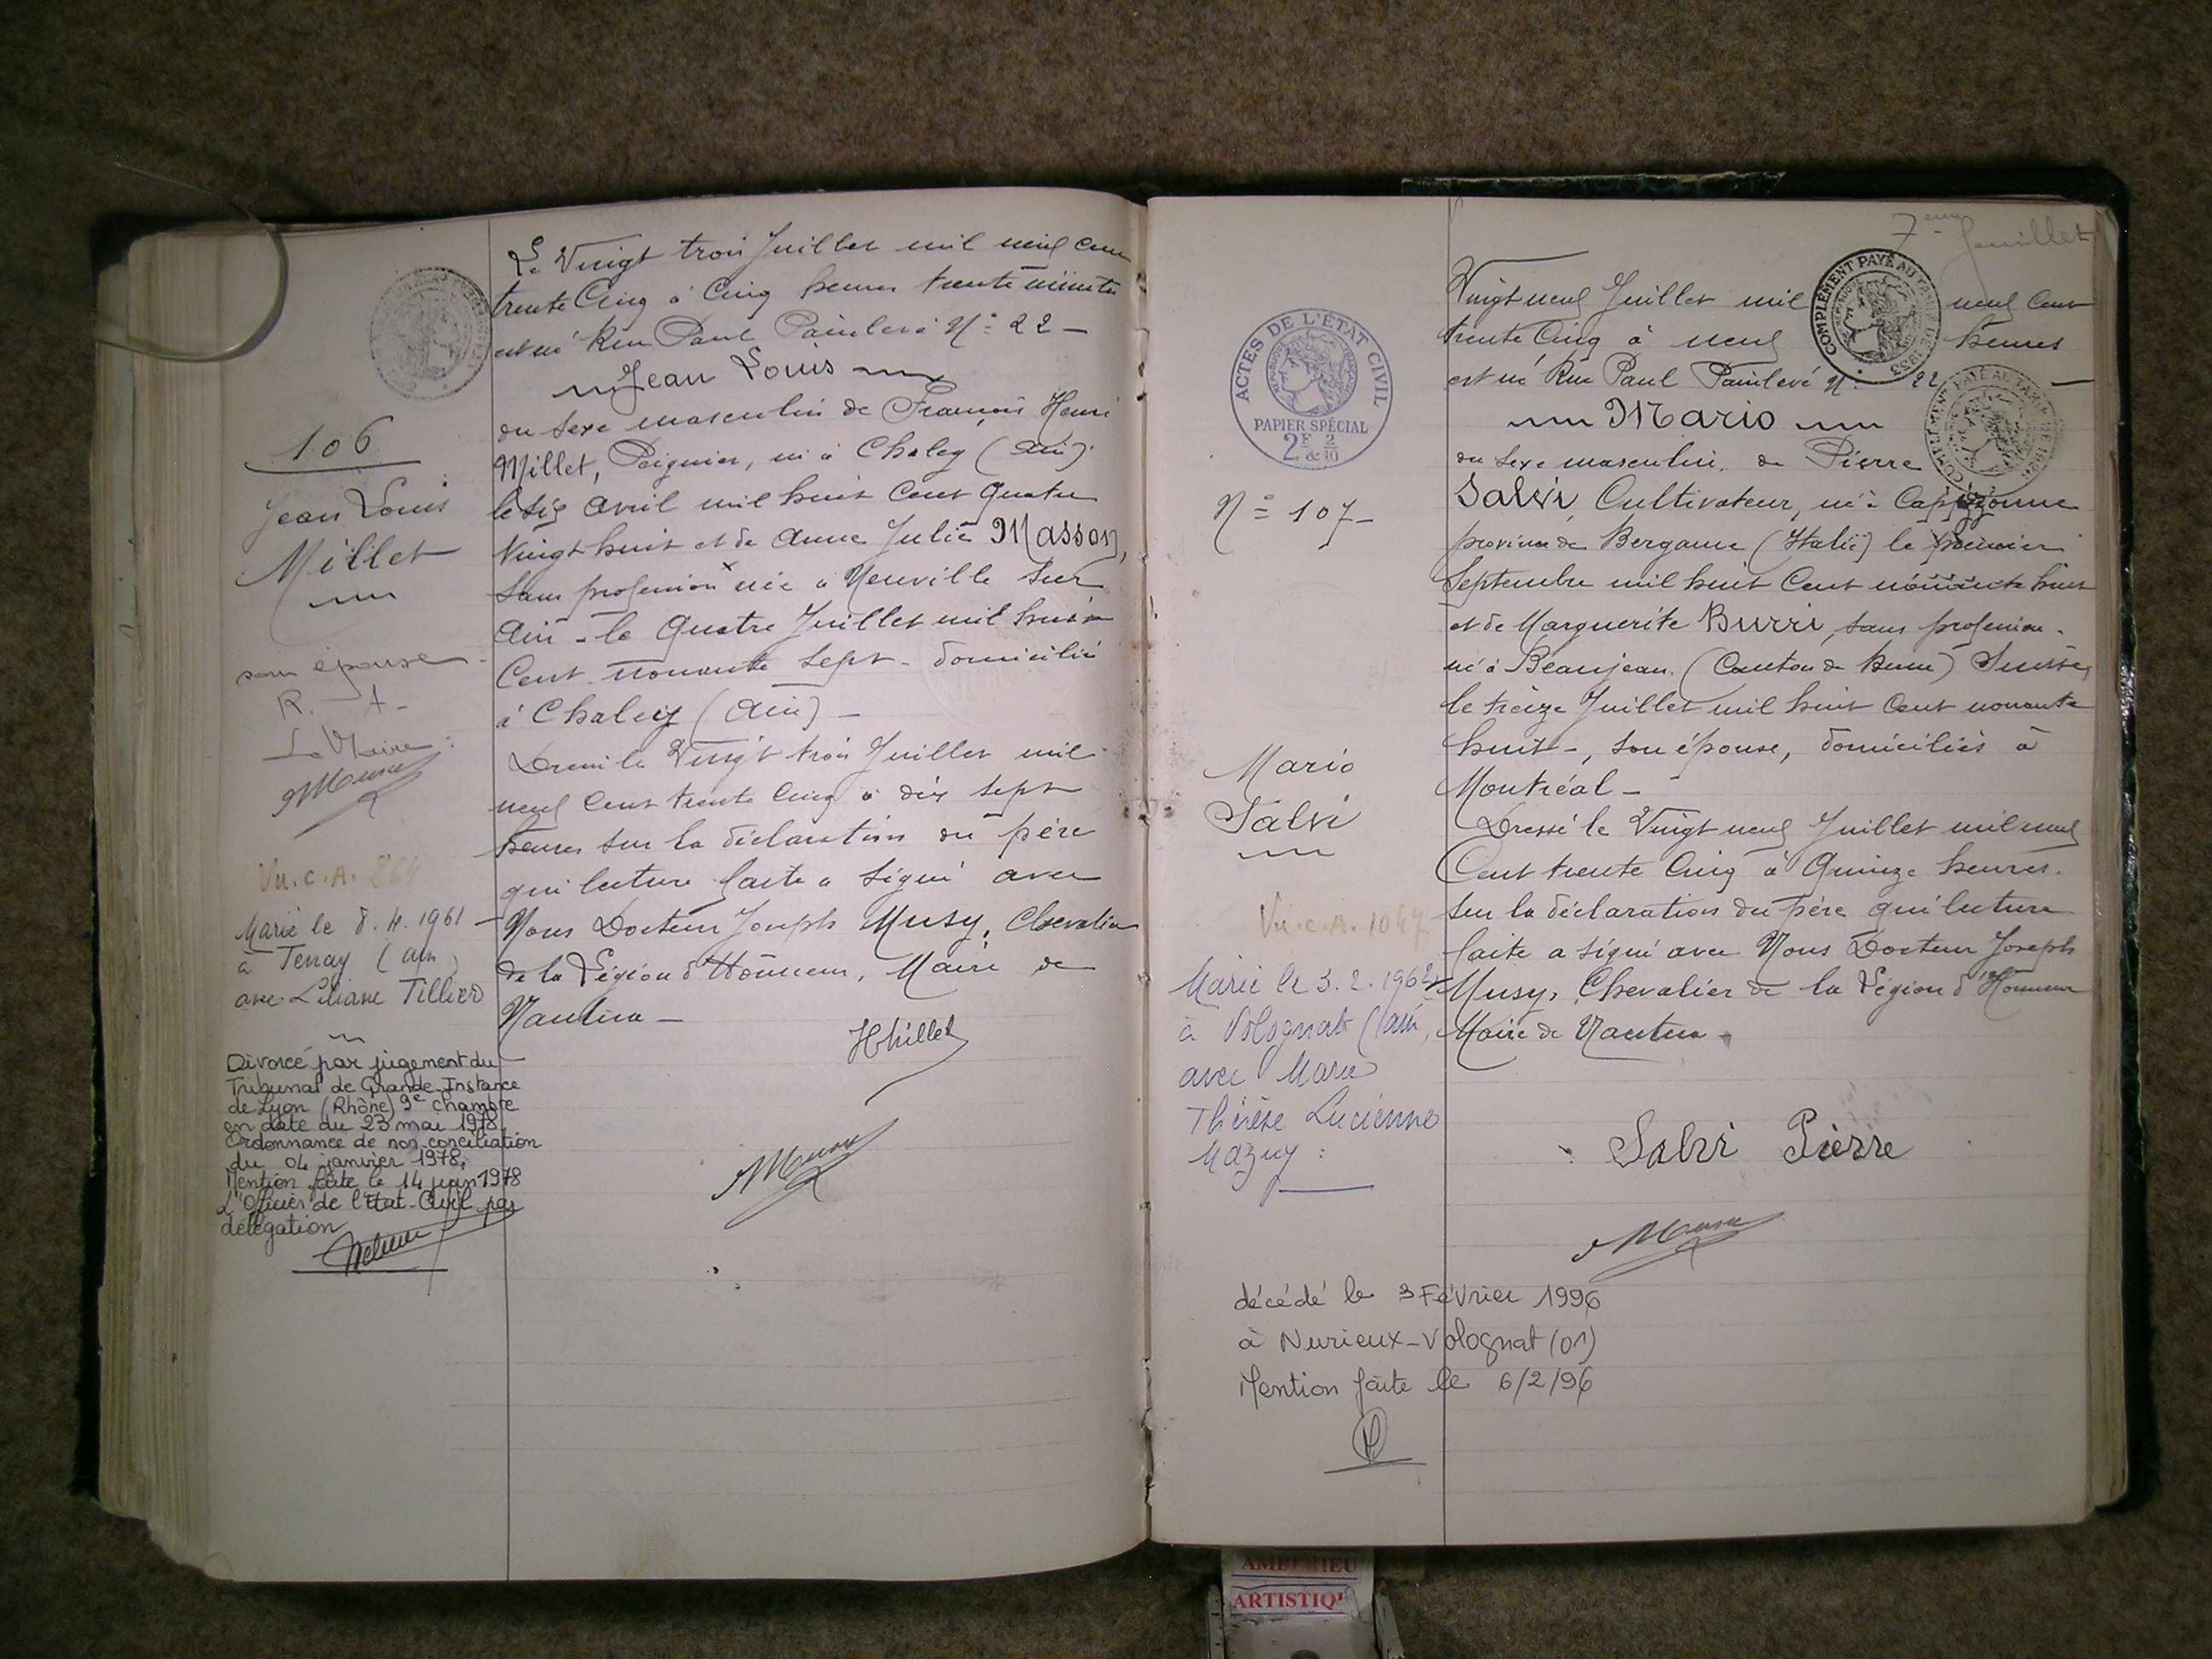 Le Vingt trois Juillet mil neuf cent
trente Cinq à Cinq heures trente minutes
est né Rue Paul Painlevé N° 22 -
Jean Louis
du sexe masculin de François Henri
Millet, Peignier, né à Chaley (Ain)
le six avril mil huit Cent quatre
Vingt huit et de Anne Julie Masson,
sans profession x née à Neuville sur
Ain - le Quatre Juillet mil huit
Cent nonante sept - domiciliés
à Chaley (Ain) -
Dressé le Vingt trois Juillet mil
neuf Cent trente Cinq à dix sept
heures sur la déclaration du père
qui lecture faite a signé avec
Nous Docteur Joseph Musy, Chevalier
de la Légion d'Honneur, Maire de
Nantua -
HMillet
106
Jean Louis
Millet
son épouse -
R. A -
Le Maire :
Vu. C. A. 264
Marié le 8. 4. 1961 -
à Tenay (Ain)
avec Liliane Tillier
Divorcé par jugement du
Tribunal de Grande Instance
de Lyon (Rhône) 9e chambre
en date du 23 mai 1978
Ordonnance de non conciliation
du 04 janvier 1978.
Mention faite le 14 juin 1978
L'Officier de l'Etat-Civil par
délégation
7eme feuillet
COMPLÉMENT PAYÉ AU
ACTES DE L'ÉTAT CIVIL
PAPIER SPÉCIAL
2F & 2/10
N° 107 -
Mario
Salvi
Vu. C. A. 1047
Marié le 3. 2. 1962
à Volognat (Ain,
avec Marie
Thérèse Lucienne
Mazuy :
Vingt neuf Juillet mil neuf Cent
trente Cinq à neuf heures
est né Rue Paul Painlevé N° 22 -
Mario
du sexe masculin. de Pierre
Salvi, Cultivateur, né à Capizzonne
province de Bergame (Italie) le premier
Septembre mil huit Cent nonante huit
et de Marguerite Burri, sans profession.
né à Beaujean. (Canton de Berne) Suisse,
le treize Juillet mil huit Cent nonante
huit -, son épouse, domiciliés à
Montréal -
Dressé le Vingt neuf Juillet mil neuf
Cent trente Cinq à Quinze heures.
sur la déclaration du père qui lecture
faite a signé avec Nous Docteur Joseph
Musy, Chevalier de la Légion d'Honneur
Maire de Nantua -
Salvi Pierre
décédé le 3 Février 1996
à Nurieux-Volognat (01)
Mention faite le 6/2/96
AMBERIEU
ARTISTIQUE